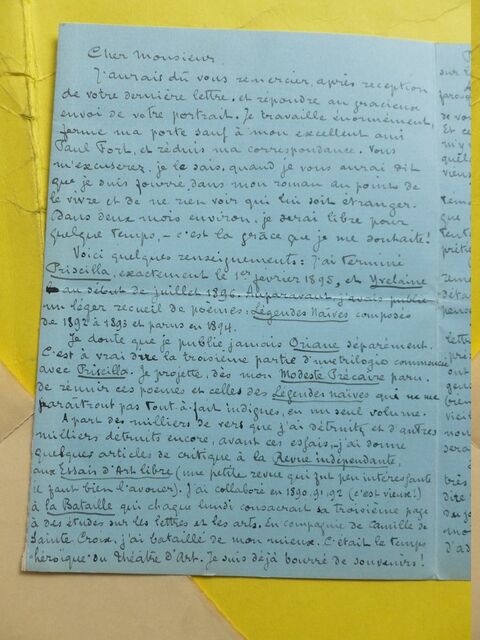 Cher Monsieur,
J'aurais dû vous remercier, après réception
de votre dernière lettre, et répondre au gracieux
envoi de votre portrait. Je travaille énormément,
ferme ma porte sauf à mon excellent ami
Paul Fort, et réduis ma correspondance. Vous
m'excuserez, je le sais, quand je vous aurai dit
que je suis fourré dans mon roman au point de
le vivre et de ne rien voir qui lui soit étranger.
Dans deux mois environ, je serai libre pour
quelque temps, – c'est la grâce que je me souhaite!
Voici quelques renseignements: J'ai terminé
Priscilla, exactement le 1er février 1895, et Yvelaine
au début de juillet 1896. Auparavant j'avais publié
un léger recueil de poèmes: Légendes Naïves composés
de 1892 à 1893 et parus en 1894.
Je doute que je publie jamais Oriane séparément.
C'est à vrai dire la troisième partie d'une trilogie commencée
avec Priscilla. Je projette, dès mon Modeste Précaire paru,
de réunir ces poèmes et celles des Légendes naïves qui ne me
paraîtront pas tout à fait indignes, en un seul volume.
A part des milliers de vers que j'ai détruits et d'autres
milliers détruits encore, avant ces essais, j'ai donné
quelques articles de critique à la Revue indépendante,
aux Essais d'Art libre (une petite revue qui fut peu intéressante
il faut bien l'avouer). J'ai collaboré en 1890, 91, 92 (c'est vieux!)
à la Bataille qui chaque lundi consacrait sa troisième page
à des études sur les lettres et les arts. En compagnie de Camille de
Sainte Croix, j'ai bataillé de mon mieux. C'était le temps
héroïque du théâtre d'Art. Je suis déjà bourré de souvenirs!